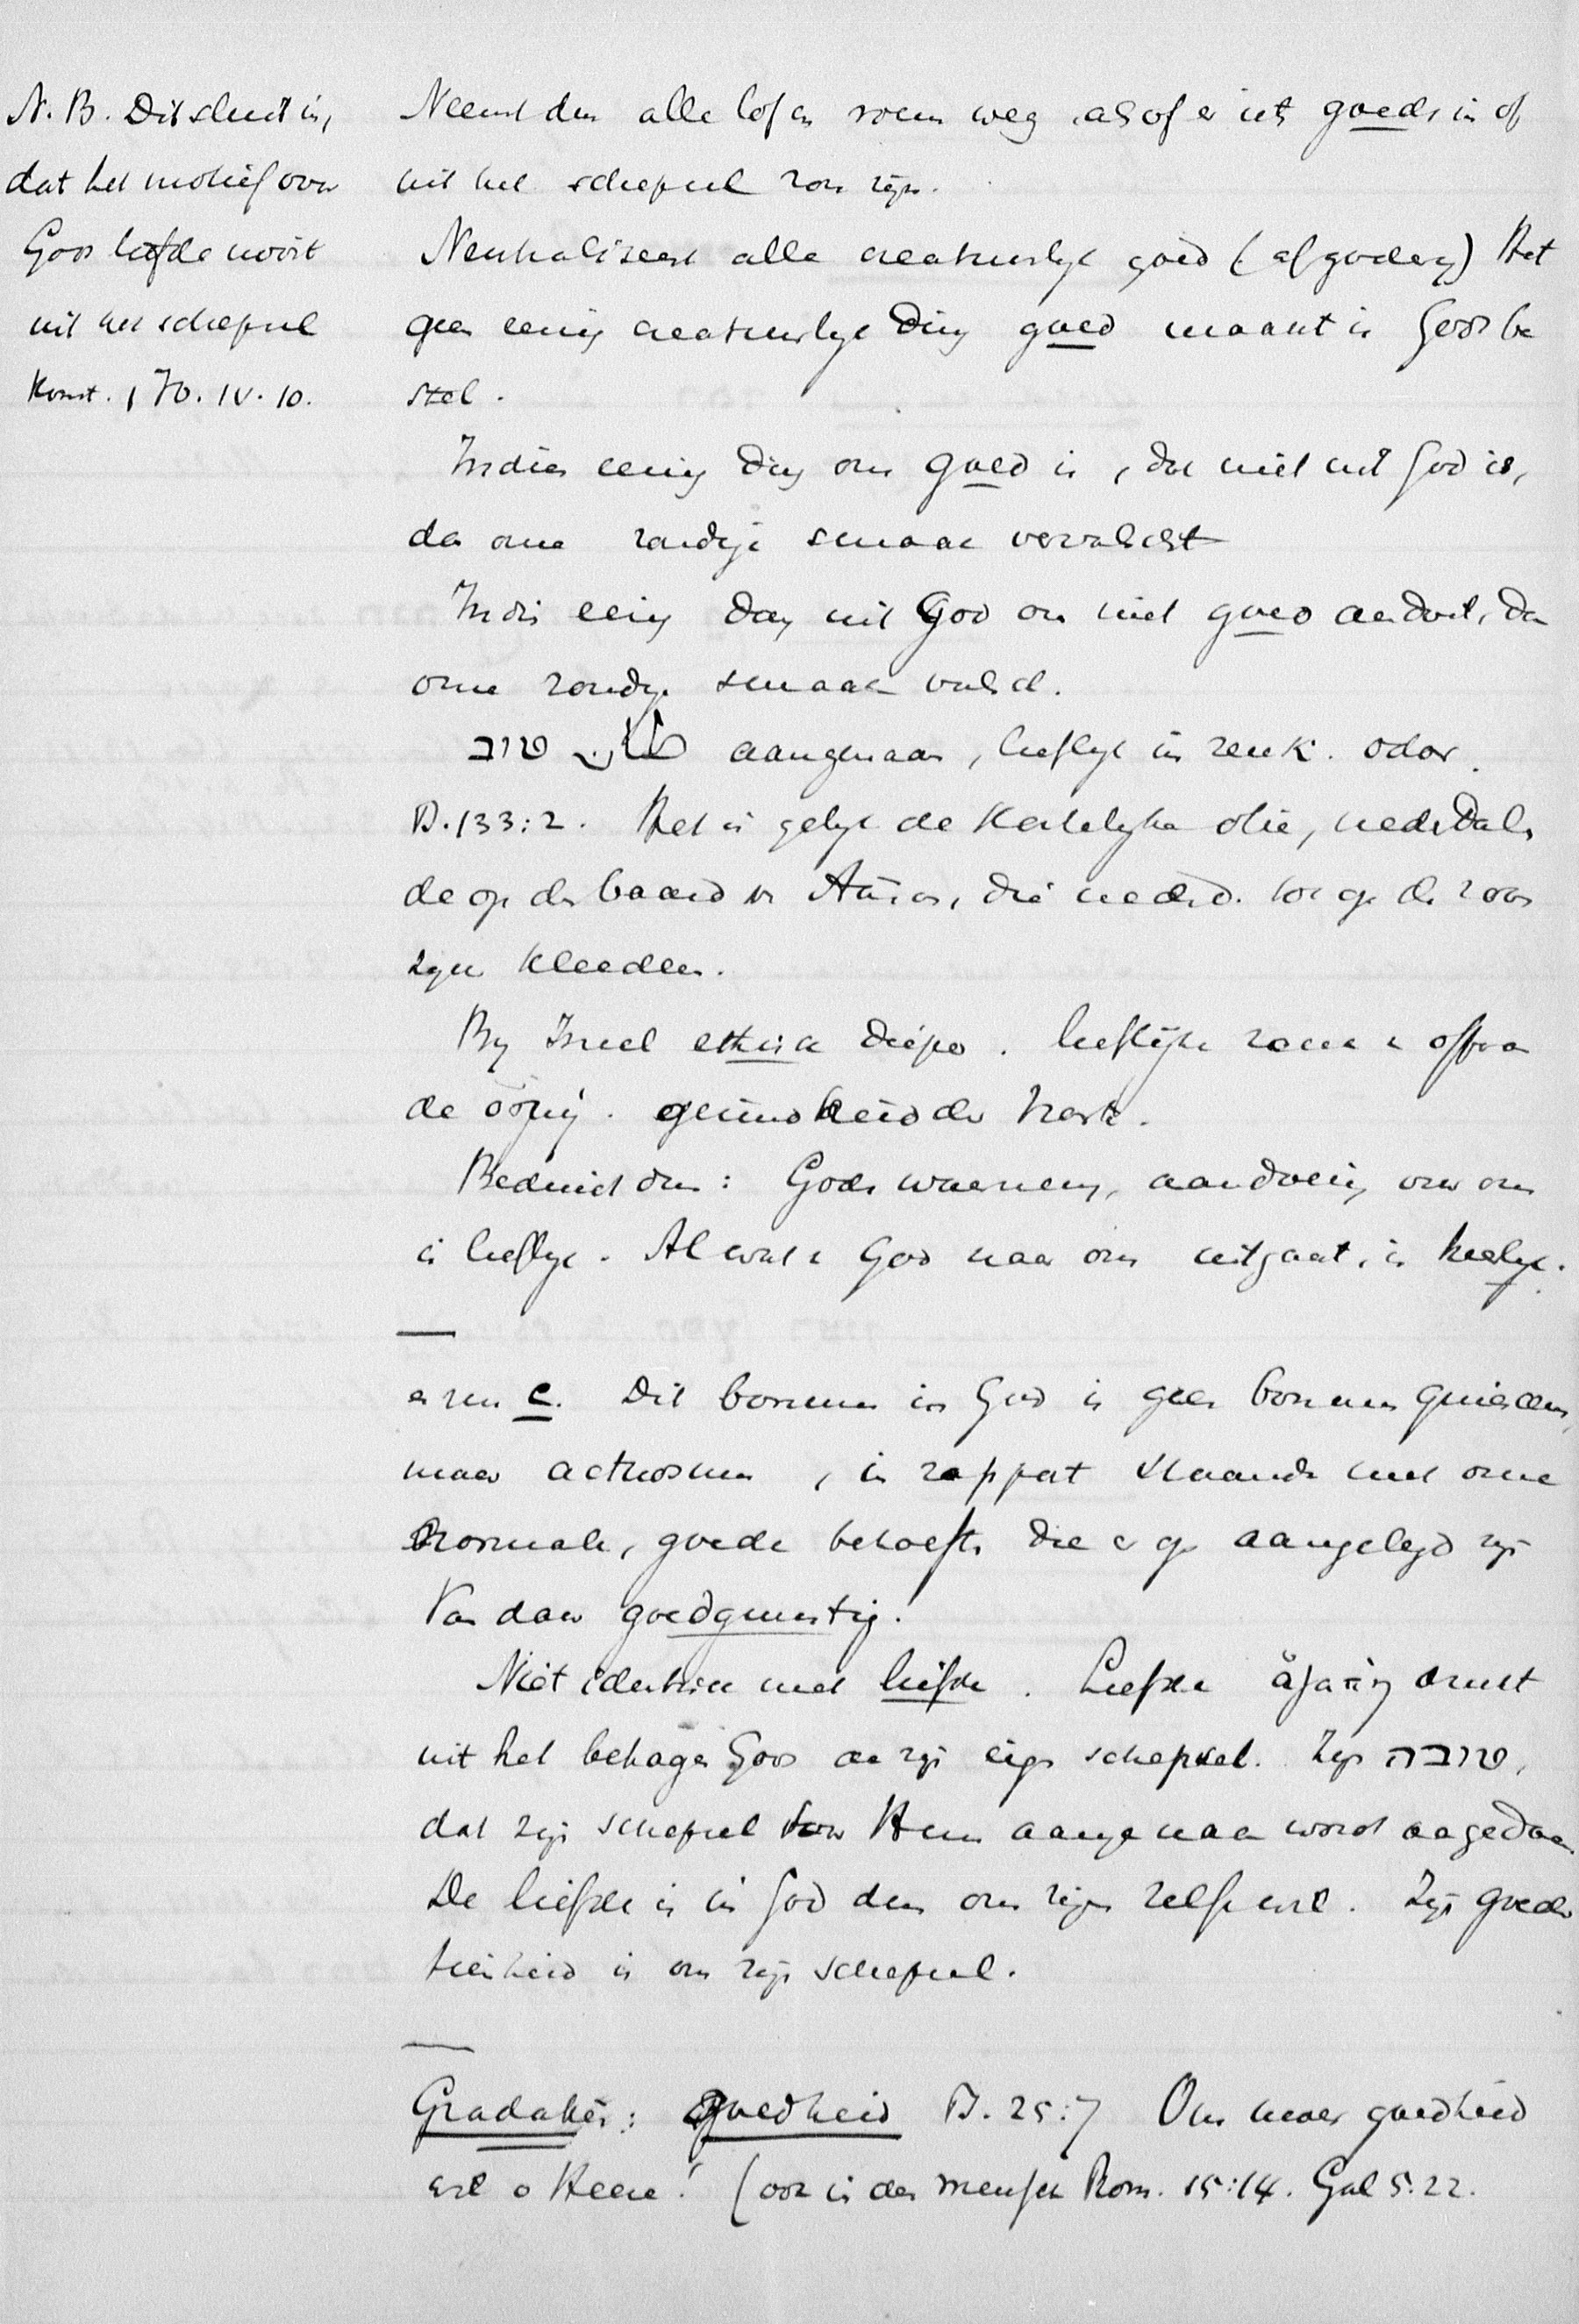 N.B. Dit sluit in,
dat het motief voor
Gods liefde nooit
uit het schepsel
komt. 1 Jo. IV. 10.
Neemt dus alle lof en roem weg alsof er iets goeds in of
uit het schepsel zou zijn.
Neutraliseert alle creatuurlijk goed (afgodery) Het
geen eenig creatuurlijk ding goed maakt is Gods be
stel.
Indien eenig ding ons goed is, dat niet uit God is,
dan onze zondige smaak vervalscht
Indien eenig ding uit God ons niet goed aandoet, dan
onze zondige smaak valsch.
טוב aangenaam, lieflijk in reuk. odor.
Ps. 133:2. Het is gelijk de kostelijke olie, nederdalen
de op den baard v Aäron, die nederd. tot op de zoom
zijner kleederen.
By Israel ethisch dieper. lieflijke reuk v offeran
de oorspr. gezindheid des harten.
Beduidt dus: Gods waarneming, aandoening voor ons
is lieflijk. Al wat v God naar ons uitgaat, is heerlijk.
en ten c. Dit bonum in God is geen bonum quiescens,
maar actuosum, in rapport staande met onze
normale, goede behoeften die er op aangelegd zijn
Van daar goedgunstig.
Niet identisch met liefde. Liefde ἀγάπη drukt
uit het behagen Gods aan zijn eigen schepsel. Zijn טובה,
dat zijn schepsel door Hem aangenaam wordt aangedaan
De liefde is in God dus om zijns zelfs wil. Zijn goeder
tierenheid is om zijn schepsel.
Gradatien: goedheid Ps. 25:7 Om uwer goedheid
wil o Heere! (ook in den mensch Rom. 15:14. Gal 5:22.